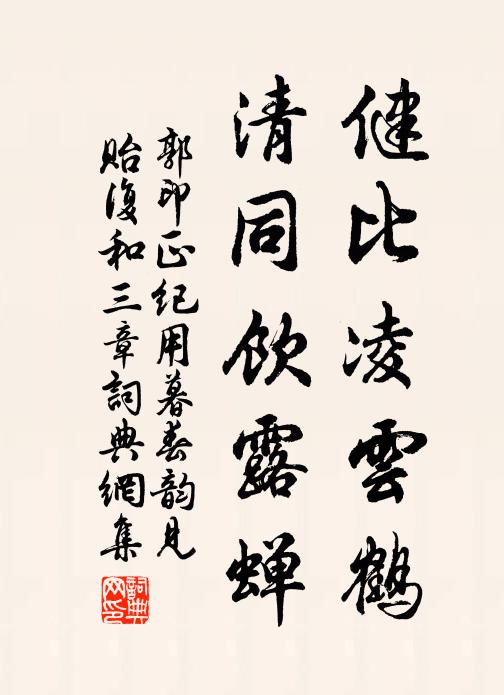 健比凌雲鶴
清同飲露蟬
郭印正紀用暮春韵見
貽復和三章詞典網集
詞典網印